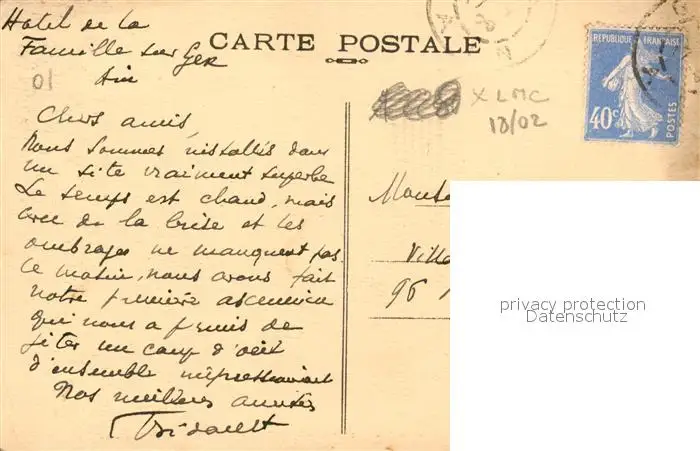 Hotel de la
Famille sur Gex
Ain
01
CARTE POSTALE
REPUBLIQUE FRANÇAISE
40c
POSTES
X LMC
18/02
Chers amis,
Nous sommes installés dans
un site vraiment superbe
Le temps est chaud, mais
avec de la brise et les
ombrages ne manquent pas
ce matin, nous avons fait
notre première ascension
qui nous a permis de
jeter un coup d'oeil
d'ensemble impressionnant
Nos meilleures amitiés
Villa
96
privacy protection
Datenschutz